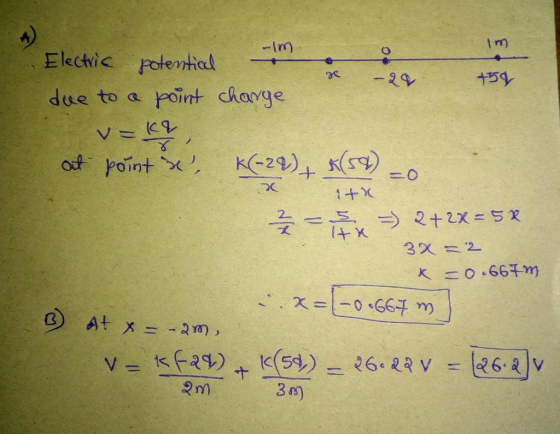 A)
-1m 0 1m
Electric potential
x -2q +5q
due to a point charge
V = kq/r,
at point 'x', K(-2q)/x + K(5q)/1+x = 0
2/x = 5/1+x ⇒ 2+2x = 5x
3x = 2
x = 0.667m
∴ x = -0.667 m
B) At x = -2m,
V = K(-2q)/2m + K(5q)/3m = 26.22 V = 26.2 V